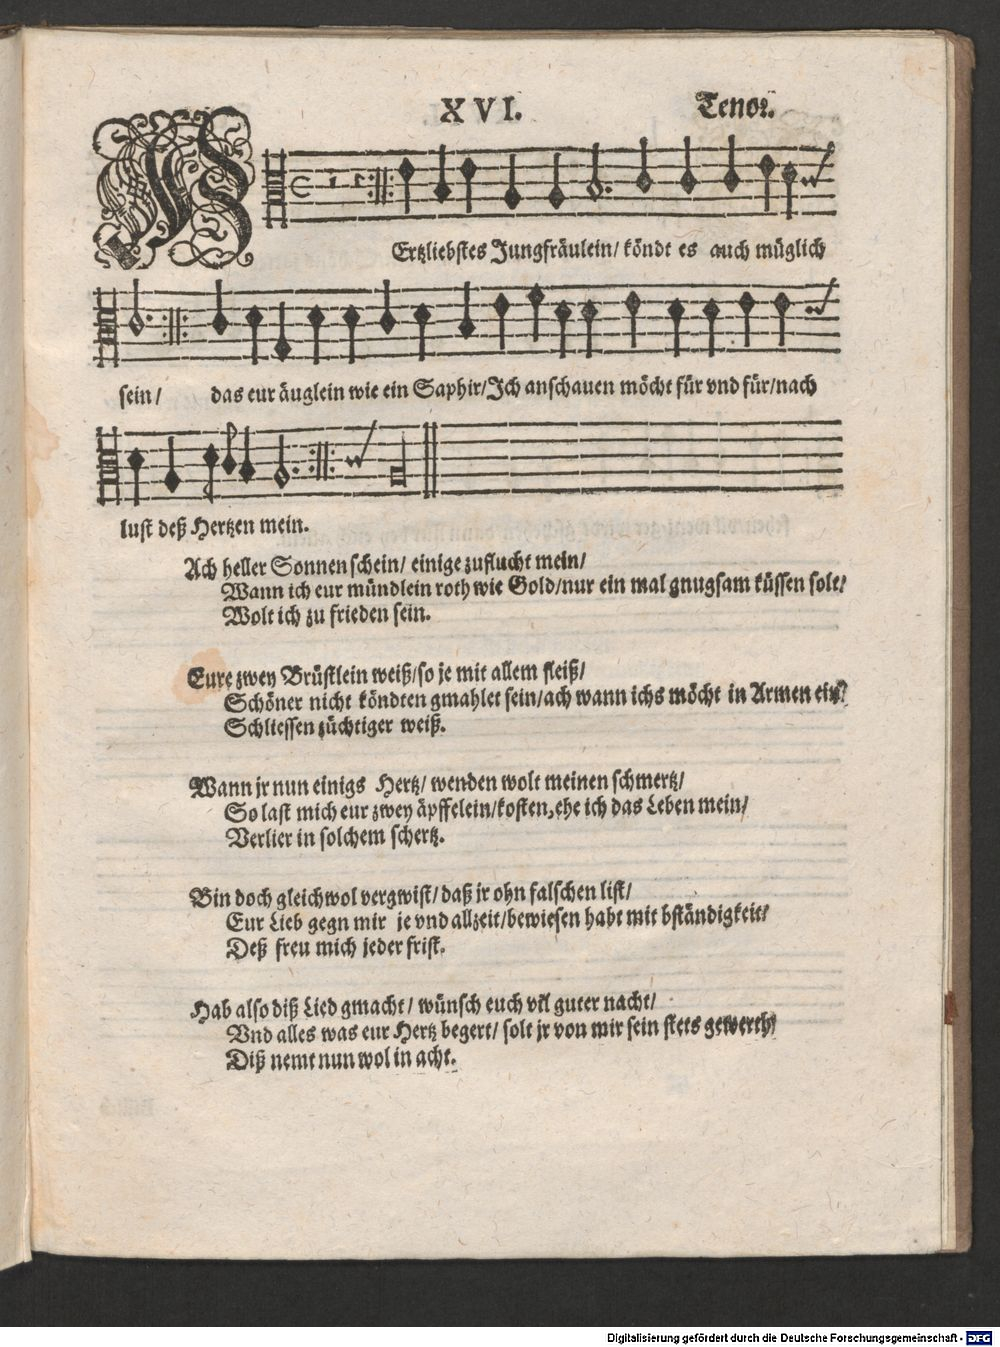 XVI.
Tenor.
HErtzliebstes Jungfräulein/ köndt es auch müglich
sein/ das eur äuglein wie ein Saphir/Ich anschauen möcht für vnd für/nach
lust deß Hertzen mein.
Ach heller Sonnenschein/ einige zuflucht mein/
Wann ich eur mündlein roth wie Gold/nur ein mal gnugsam küssen solt/
Wolt ich zu frieden sein.
Eure zwey Brüstlein weiß/so je mit allem fleiß/
Schöner nicht köndten gmahlet sein/ach wann ichs möcht in Armen ein/
Schliessen züchtiger weiß.
Wann jr nun einigs Hertz/ wenden wolt meinen schmertz/
So last mich eur zwey äpffelein/kosten,ehe ich das Leben mein/
Verlier in solchem schertz.
Bin doch gleichwol vergwist/ daß jr ohn falschen list/
Eur Lieb gegn mir je vnd allzeit/bewiesen habt mit bständigkeit/
Deß freu mich jeder frist.
Hab also diß Lied gmacht/ wünsch euch vil guter nacht/
Vnd alles was eur Hertz begert/ solt jr von mir sein stets gewerth/
Diß nemt nun wol in acht.
Digitalisierung gefördert durch die Deutsche Forschungsgemeinschaft - DFG